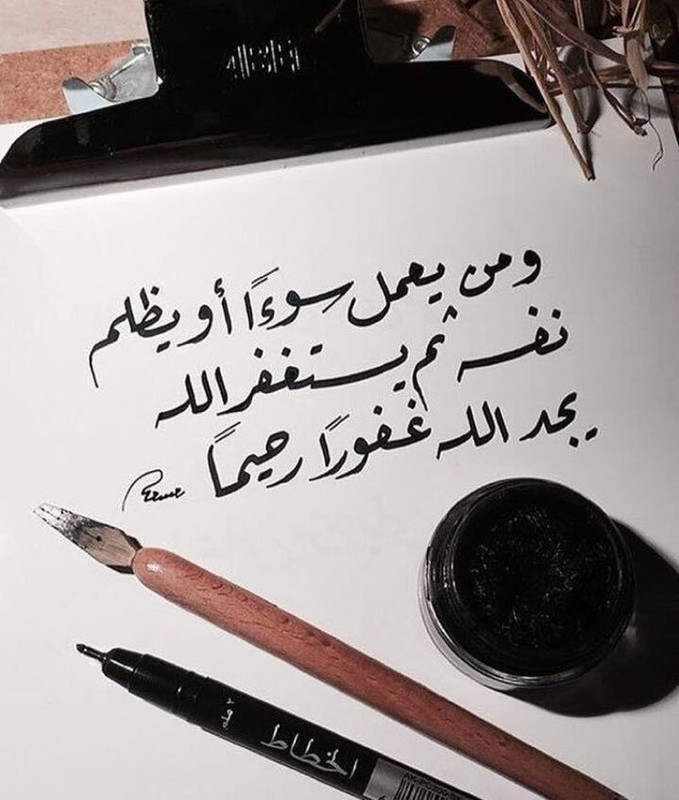 ومن يعمل سوءًا أو يظلم
نفسه ثم يستغفر الله
يجد الله غفورًا رحيمًا
الخطاط
٢ مله